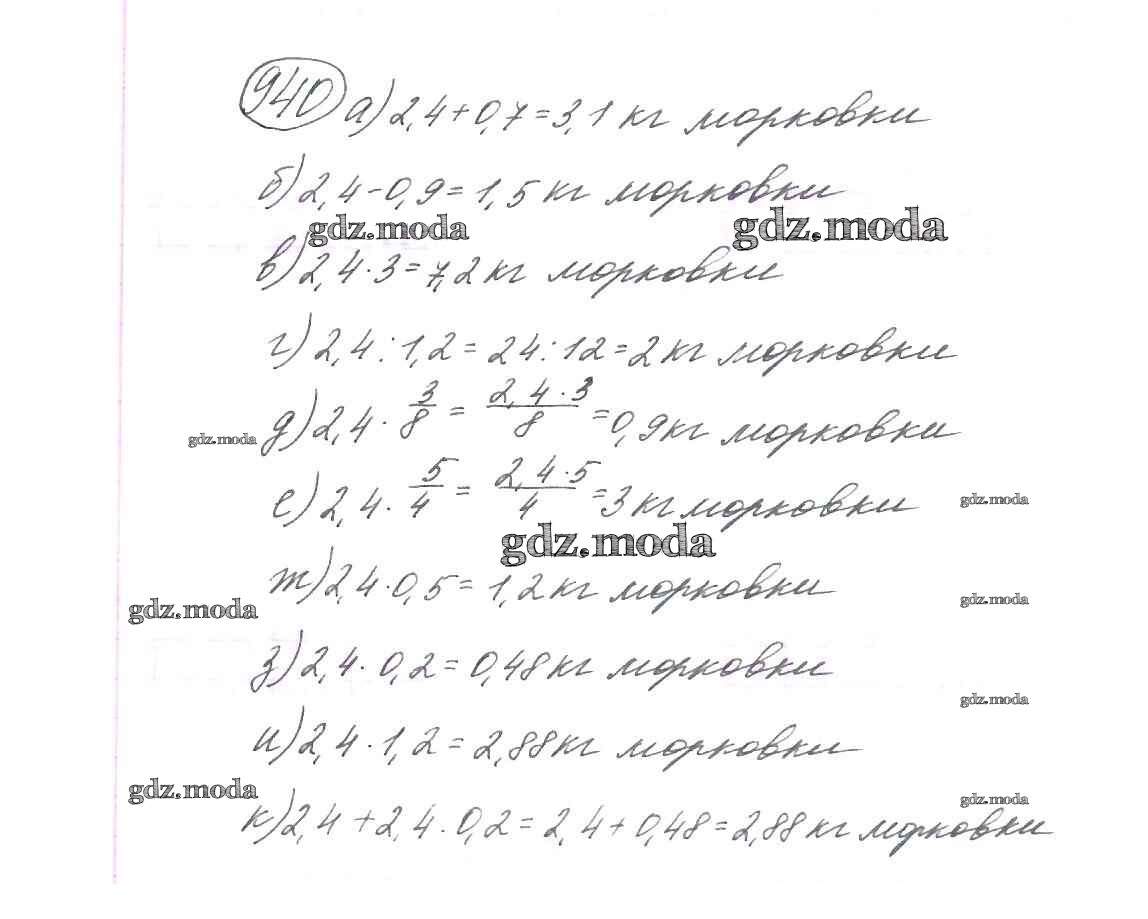 940 а) 2,4 + 0,7 = 3,1 кг морковки
б) 2,4 - 0,9 = 1,5 кг морковки
gdz.moda gdz.moda
в) 2,4 · 3 = 7,2 кг морковки
г) 2,4 : 1,2 = 24 : 12 = 2 кг морковки
gdz.moda д) 2,4 · 3/8 = 2,4 · 3/8 = 0,9 кг морковки
е) 2,4 · 5/4 = 2,4 · 5/4 = 3 кг морковки gdz.moda
gdz.moda
ж) 2,4 · 0,5 = 1,2 кг морковки gdz.moda
gdz.moda
з) 2,4 · 0,2 = 0,48 кг морковки
gdz.moda
и) 2,4 · 1,2 = 2,88 кг морковки
gdz.moda gdz.moda
к) 2,4 + 2,4 · 0,2 = 2,4 + 0,48 = 2,88 кг морковки